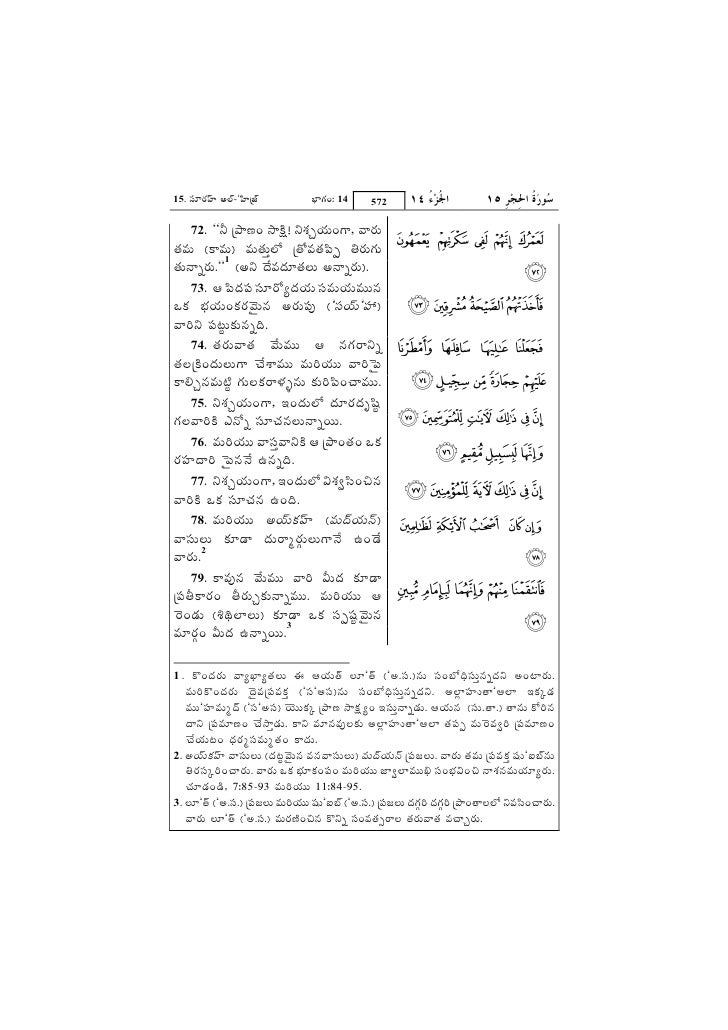 15. సూరహ్ అల్-'హిజ్ర్ భాగం: 14 572 الجُزْءُ ١٤ سُورَةُ الحِجْرِ ١٥
72. “నీ ప్రాణం సాక్షి! నిశ్చయంగా, వారు
తమ (కామ) మత్తులో త్రోవతప్పి తిరుగు
తున్నారు.”1 (అని దేవదూతలు అన్నారు).
73. ఆ పిదప సూర్యోదయ సమయమున
ఒక భయంకరమైన అరుపు ('సయ్'హా)
వారిని పట్టుకున్నది.
74. తరువాత మేము ఆ నగరాన్ని
తలక్రిందులుగా చేశాము మరియు వారిపై
కాల్చినమట్టి గులకరాళ్ళను కురిపించాము.
75. నిశ్చయంగా, ఇందులో దూరదృష్టి
గలవారికి ఎన్నో సూచనలున్నాయి.
76. మరియు వాస్తవానికి ఆ ప్రాంతం ఒక
రహదారి పైననే ఉన్నది.
77. నిశ్చయంగా, ఇందులో విశ్వసించిన
వారికి ఒక సూచన ఉంది.
78. మరియు అయ్కహ్ (మద్‌యన్)
వాసులు కూడా దుర్మార్గులుగానే ఉండే
వారు.2
79. కావున మేము వారి మీద కూడా
ప్రతీకారం తీర్చుకున్నాము. మరియు ఆ
రెండు (శిథిలాలు) కూడా ఒక స్పష్టమైన
మార్గం మీద ఉన్నాయి.3
لَعَمْرُكَ إِنَّهُمْ لَفِى سَكْرَتِهِمْ يَعْمَهُونَ
٧٢
فَأَخَذَتْهُمُ ٱلصَّيْحَةُ مُشْرِقِينَ ٧٣
فَجَعَلْنَا عَٰلِيَهَا سَافِلَهَا وَأَمْطَرْنَا
عَلَيْهِمْ حِجَارَةً مِّن سِجِّيلٍ ٧٤
إِنَّ فِى ذَٰلِكَ لَءَايَٰتٍ لِّلْمُتَوَسِّمِينَ ٧٥
وَإِنَّهَا لَبِسَبِيلٍ مُّقِيمٍ ٧٦
إِنَّ فِى ذَٰلِكَ لَءَايَةً لِّلْمُؤْمِنِينَ ٧٧
وَإِن كَانَ أَصْحَٰبُ ٱلْأَيْكَةِ لَظَٰلِمِينَ
٧٨
فَٱنتَقَمْنَا مِنْهُمْ وَإِنَّهُمَا لَبِإِمَامٍ مُّبِينٍ
٧٩
1 . కొందరు వ్యాఖ్యాతలు ఈ ఆయత్ లూ'త్ ('అ.స.)ను సంబోధిస్తున్నదని అంటారు.
మరికొందరు దైవప్రవక్త ('స'అస)ను సంబోధిస్తున్నదని. అల్లాహుతా'ఆలా ఇక్కడ
ము'హమ్మద్ ('స'అస) యొక్క ప్రాణ సాక్ష్యం ఇస్తున్నాడు. ఆయన (సు.తా.) తాను కోరిన
దాని ప్రమాణం చేస్తాడు. కాని మానవులకు అల్లాహుతా'ఆలా తప్ప మరెవ్వరి ప్రమాణం
చేయటం ధర్మసమ్మతం కాదు.
2. అయ్కహ్ వాసులు (దట్టమైన వనవాసులు) మద్‌యన్ ప్రజలు. వారు తమ ప్రవక్త షు'ఐబ్‌ను
తిరస్కరించారు. వారు ఒక భూకంపం మరియు జ్వాలాముఖి సంభవించి నాశనమయ్యారు.
చూడండి, 7:85-93 మరియు 11:84-95.
3. లూ'త్ ('అ.స.) ప్రజలు మరియు షు'ఐబ్ ('అ.స.) ప్రజలు దగ్గరి దగ్గరి ప్రాంతాలలో నివసించారు.
వారు లూ'త్ ('అ.స.) మరణించిన కొన్ని సంవత్సరాల తరువాత వచ్చారు.